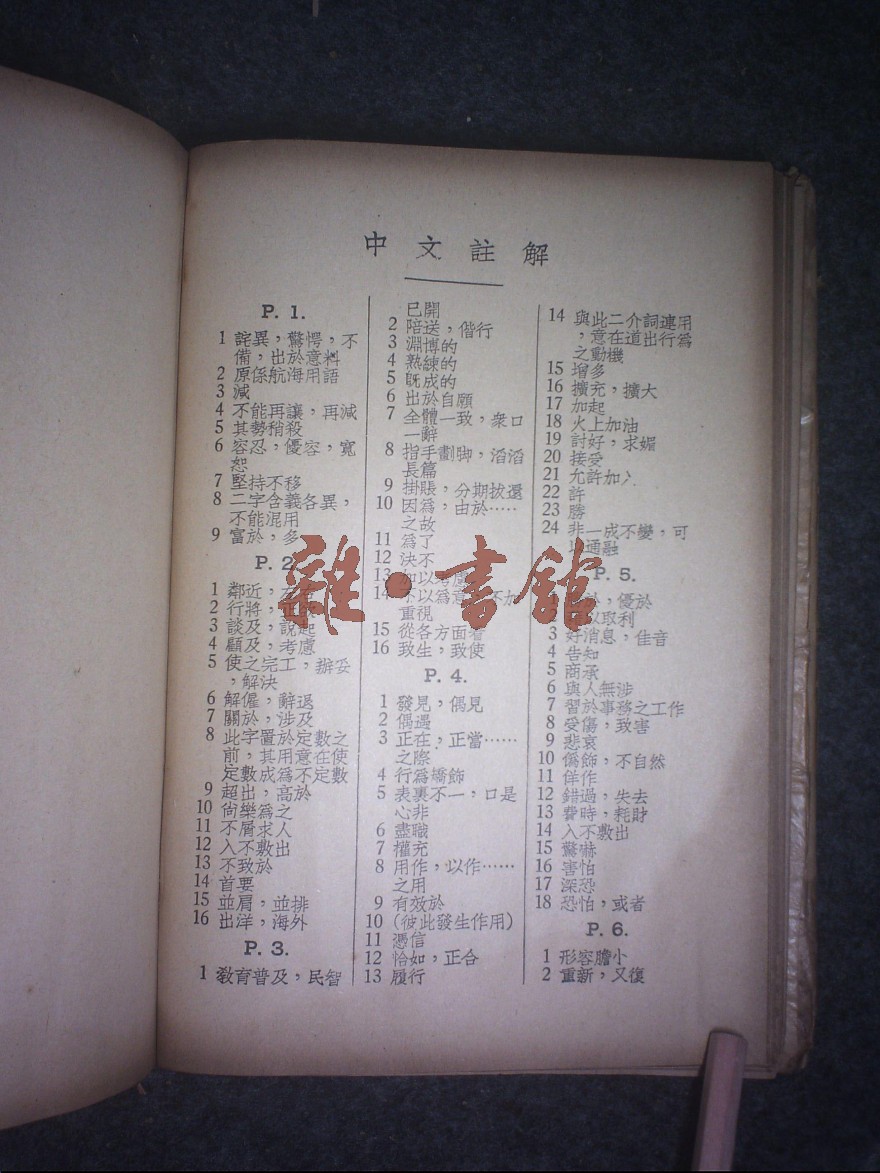 中文註解
P. 1.
1 詫異，驚愕，不
備，出於意料
2 原係航海用語
3 減
4 不能再讓，再減
5 其勢稍殺
6 容忍，優容，寬
恕
7 堅持不移
8 二字含義各異，
不能混用
9 富於，多
P. 2
1 鄰近，
2 行將，
3 談及，說起
4 顧及，考慮
5 使之完工，辦妥
，解決
6 解僱，辭退
7 關於，涉及
8 此字置於定數之
前，其用意在使
定數成為不定數
9 超出，高於
10 尙樂為之
11 不屑求人
12 入不敷出
13 不致於
14 首要
15 並肩，並排
16 出洋，海外
P. 3.
1 敎育普及，民智
已開
2 陪送，偕行
3 淵博的
4 熟練的
5 旣成的
6 出於自願
7 全體一致，衆口
一辭
8 指手劃脚，滔滔
長篇
9 掛賬，分期拔還
10 因為，由於……
之故
11 爲了
12 決不
13 加以考慮
14 不以為意，不加
重視
15 從各方面看
16 致生，致使
P. 4.
1 發見，偶見
2 偶遇
3 正在，正當……
之際
4 行為矯飾
5 表裏不一，口是
心非
6 盡職
7 權充
8 用作，以作……
之用
9 有效於
10 (彼此發生作用)
11 憑信
12 恰如，正合
13 履行
14 與此二介詞連用
，意在道出行為
之動機
15 增多
16 擴充，擴大
17 加起
18 火上加油
19 討好，求媚
20 接受
21 允許加入
22 許
23 勝
24 非一成不變，可
以通融
P. 5.
，優於
以取利
3 好消息，佳音
4 告知
5 商承
6 與人無涉
7 習於事務之工作
8 受傷，致害
9 悲哀
10 僞飾，不自然
11 佯作
12 錯過，失去
13 費時，耗財
14 入不敷出
15 驚嚇
16 害怕
17 深恐
18 恐怕，或者
P. 6.
1 形容膽小
2 重新，又復
雜·書館